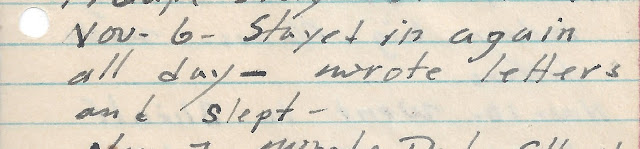 Nov- 6- Stayed in again
all day- wrote letters
and slept-